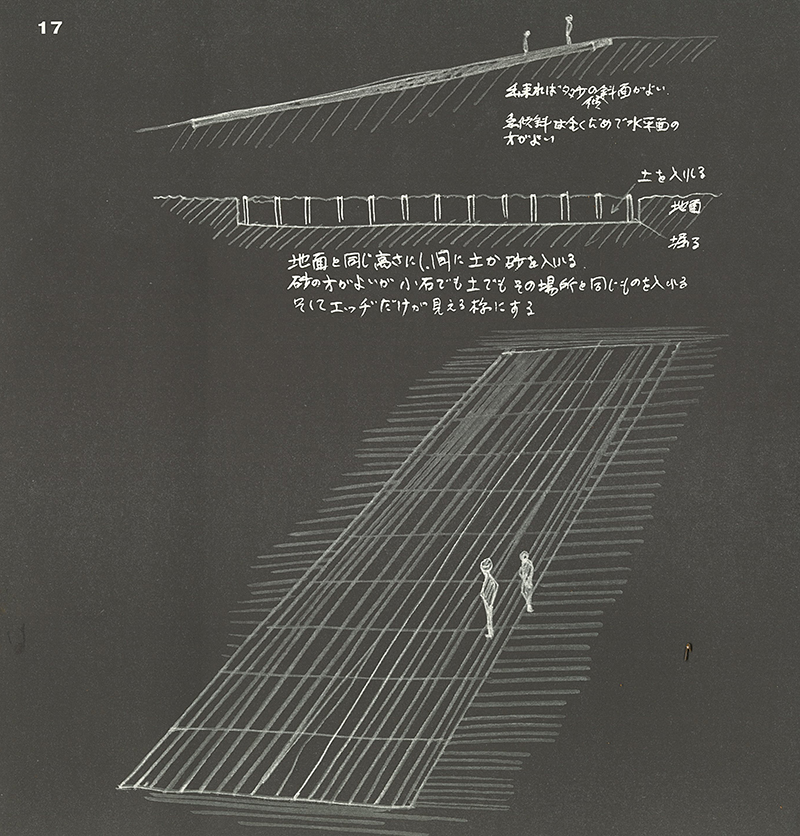 17
出来れば多少の斜面がよい
傾
急傾斜は全くだめで水平面の
方がよい
土を入れる
地面
掘る
地面と同じ高さにし、間に土か砂を入れる.
砂の方がよいが小石でも土でもその場所と同じものを入れる
そしてエッヂだけが見える様にする